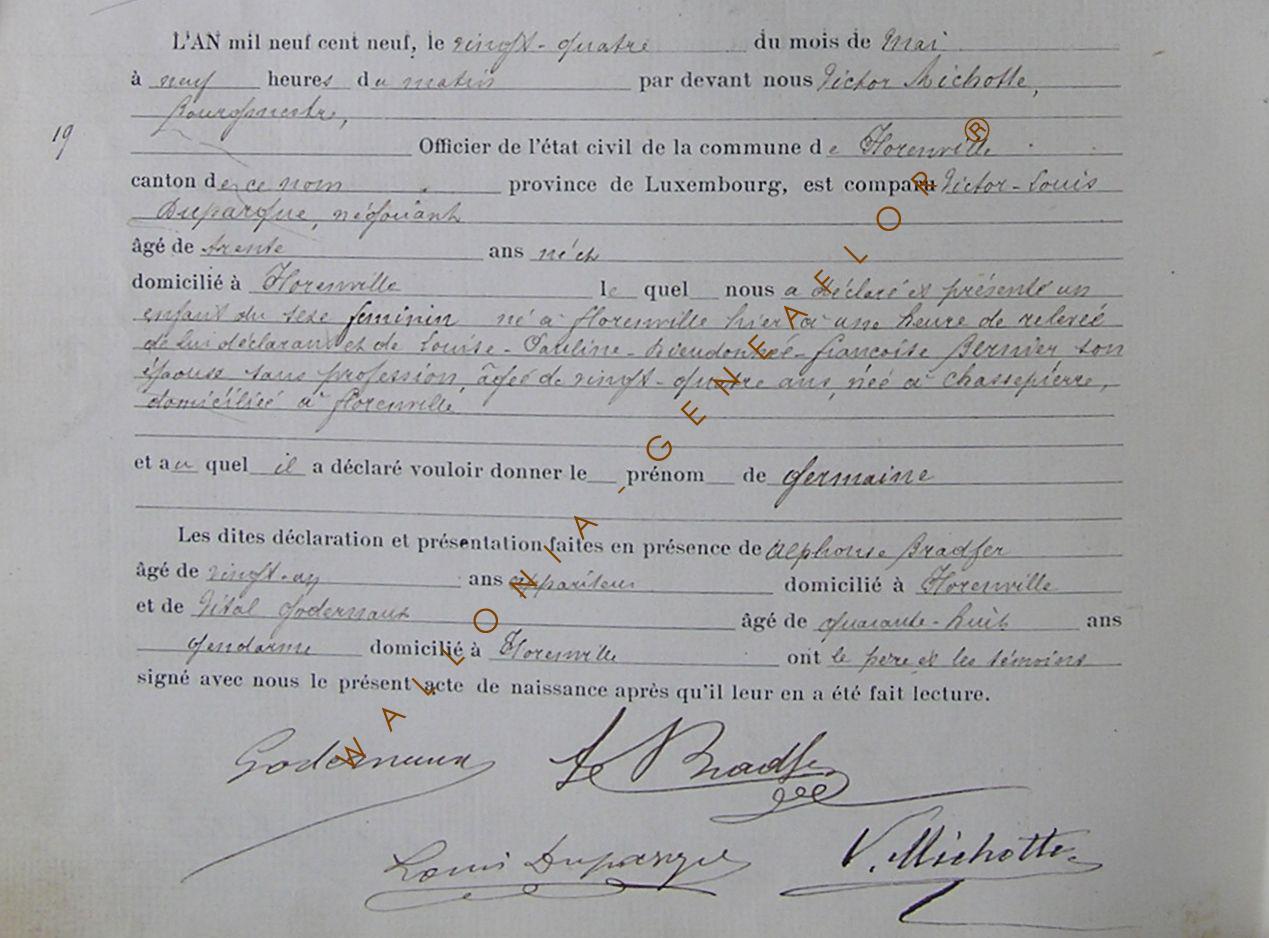 L'AN mil neuf cent neuf, le vingt-quatre du mois de Mai
à neuf heures du matin par devant nous Victor Michotte,
Bourgmestre,
19
Officier de l'état civil de la commune de Florenville
canton de ce nom province de Luxembourg, est comparu Victor-Louis
Duparque, négociant
âgé de trente ans né à
domicilié à Florenville le quel nous a déclaré et présenté un
enfant du sexe feminin né à florenville hier à une heure de relevée
de lui déclarant et de Louise-Pauline-Dieudonnée-françoise Bernier son
épouse sans profession, âgée de vingt-quatre ans, née à chassepierre,
domiciliée à florenville
et au quel il a déclaré vouloir donner le prénom de Germaine
Les dites déclaration et présentation faites en présence de Alphonse Bradfer
âgé de vingt-un ans appariteur domicilié à Florenville
et de Vital Godernaux âgé de quarante-huit ans
gendarme domicilié à Florenville ont le père et les témoins
signé avec nous le présent acte de naissance après qu'il leur en a été fait lecture.
Godernaux Bradfer
Louis Duparque V. Michotte
WALLONIA-GENEAFLOR®